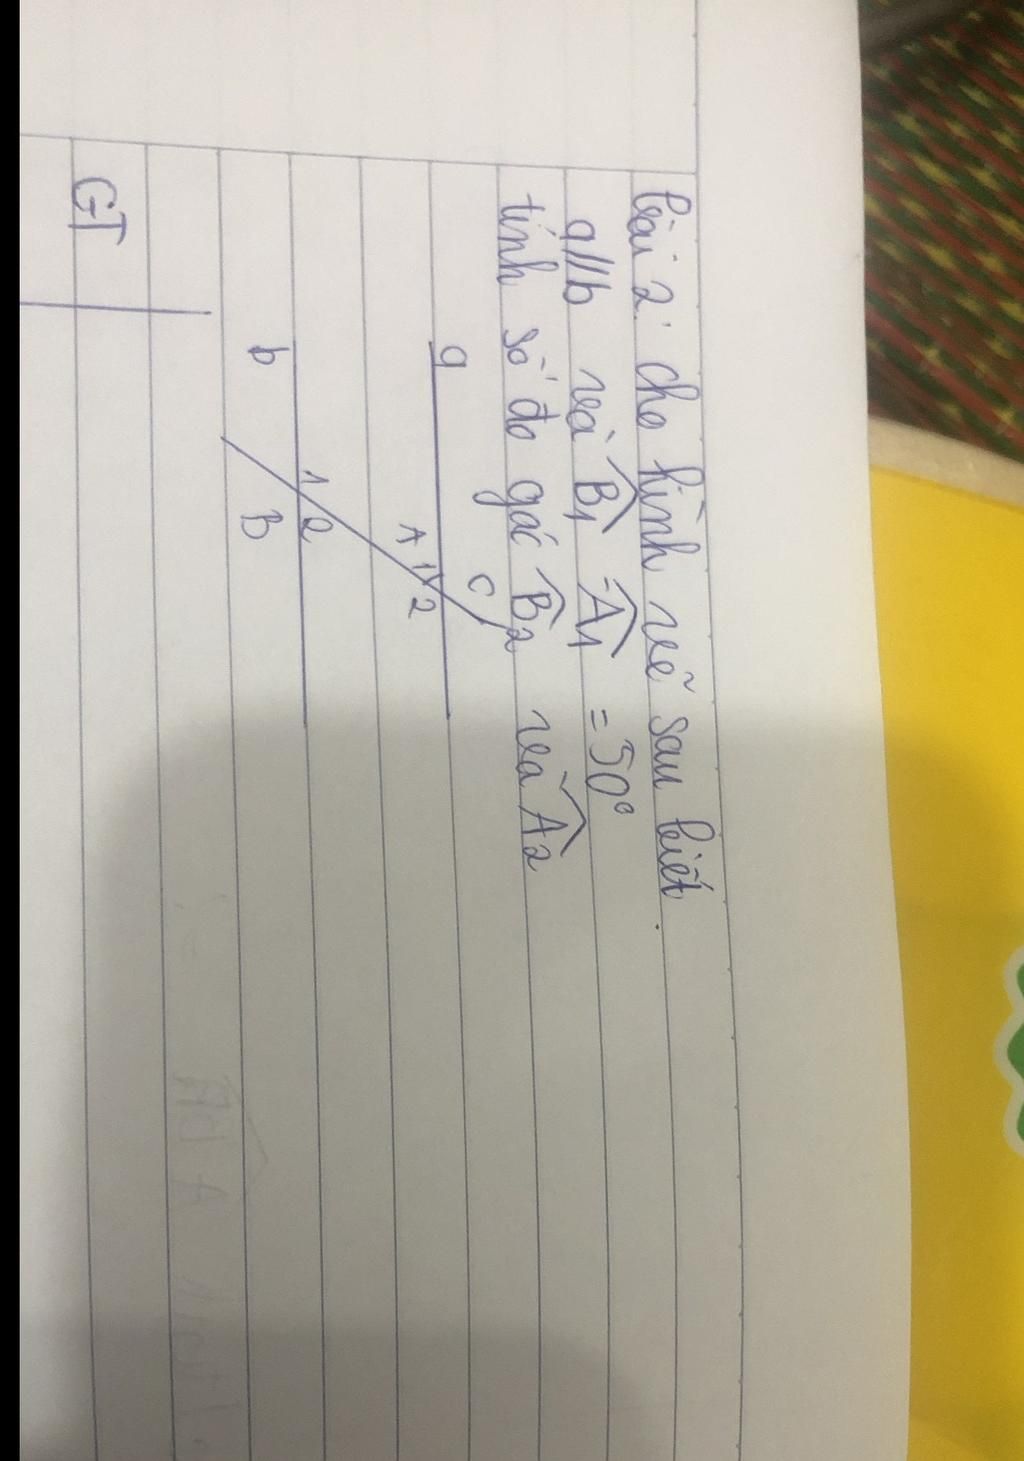 bài 2: cho hình vẽ sau biết
a//b và B̂1 = Â1 = 50°
tính số đo góc B̂2 và Â2
a
c
A 1 2
1 2
b
B
GT